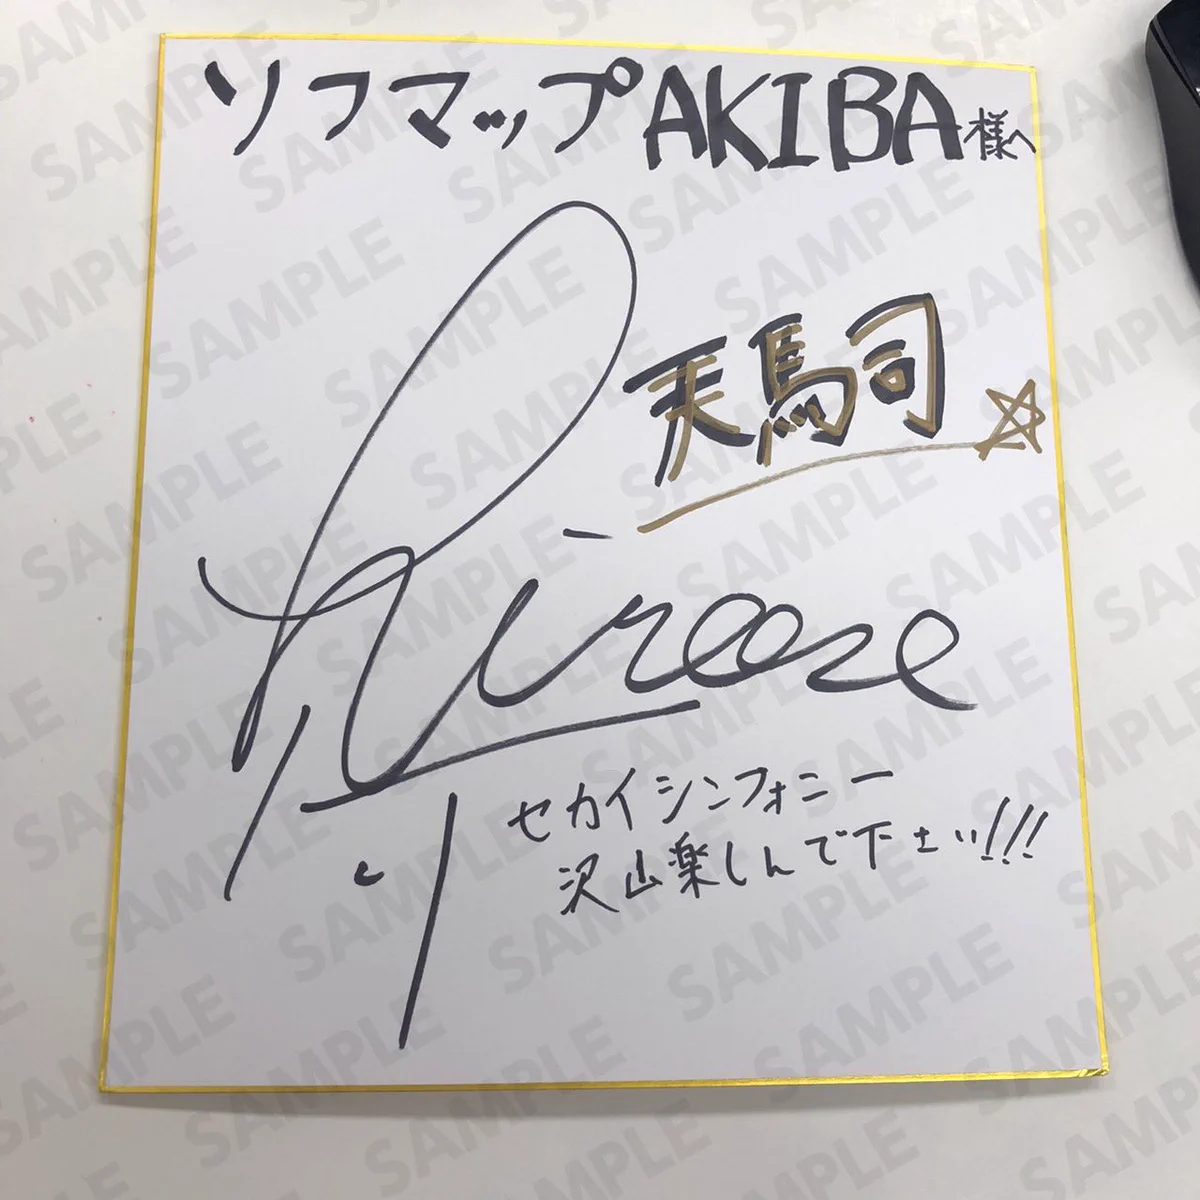 ソフマップAKIBA様へ
天馬司☆
セカイシンフォニー
沢山楽しんで下さい!!!
SAMPLE